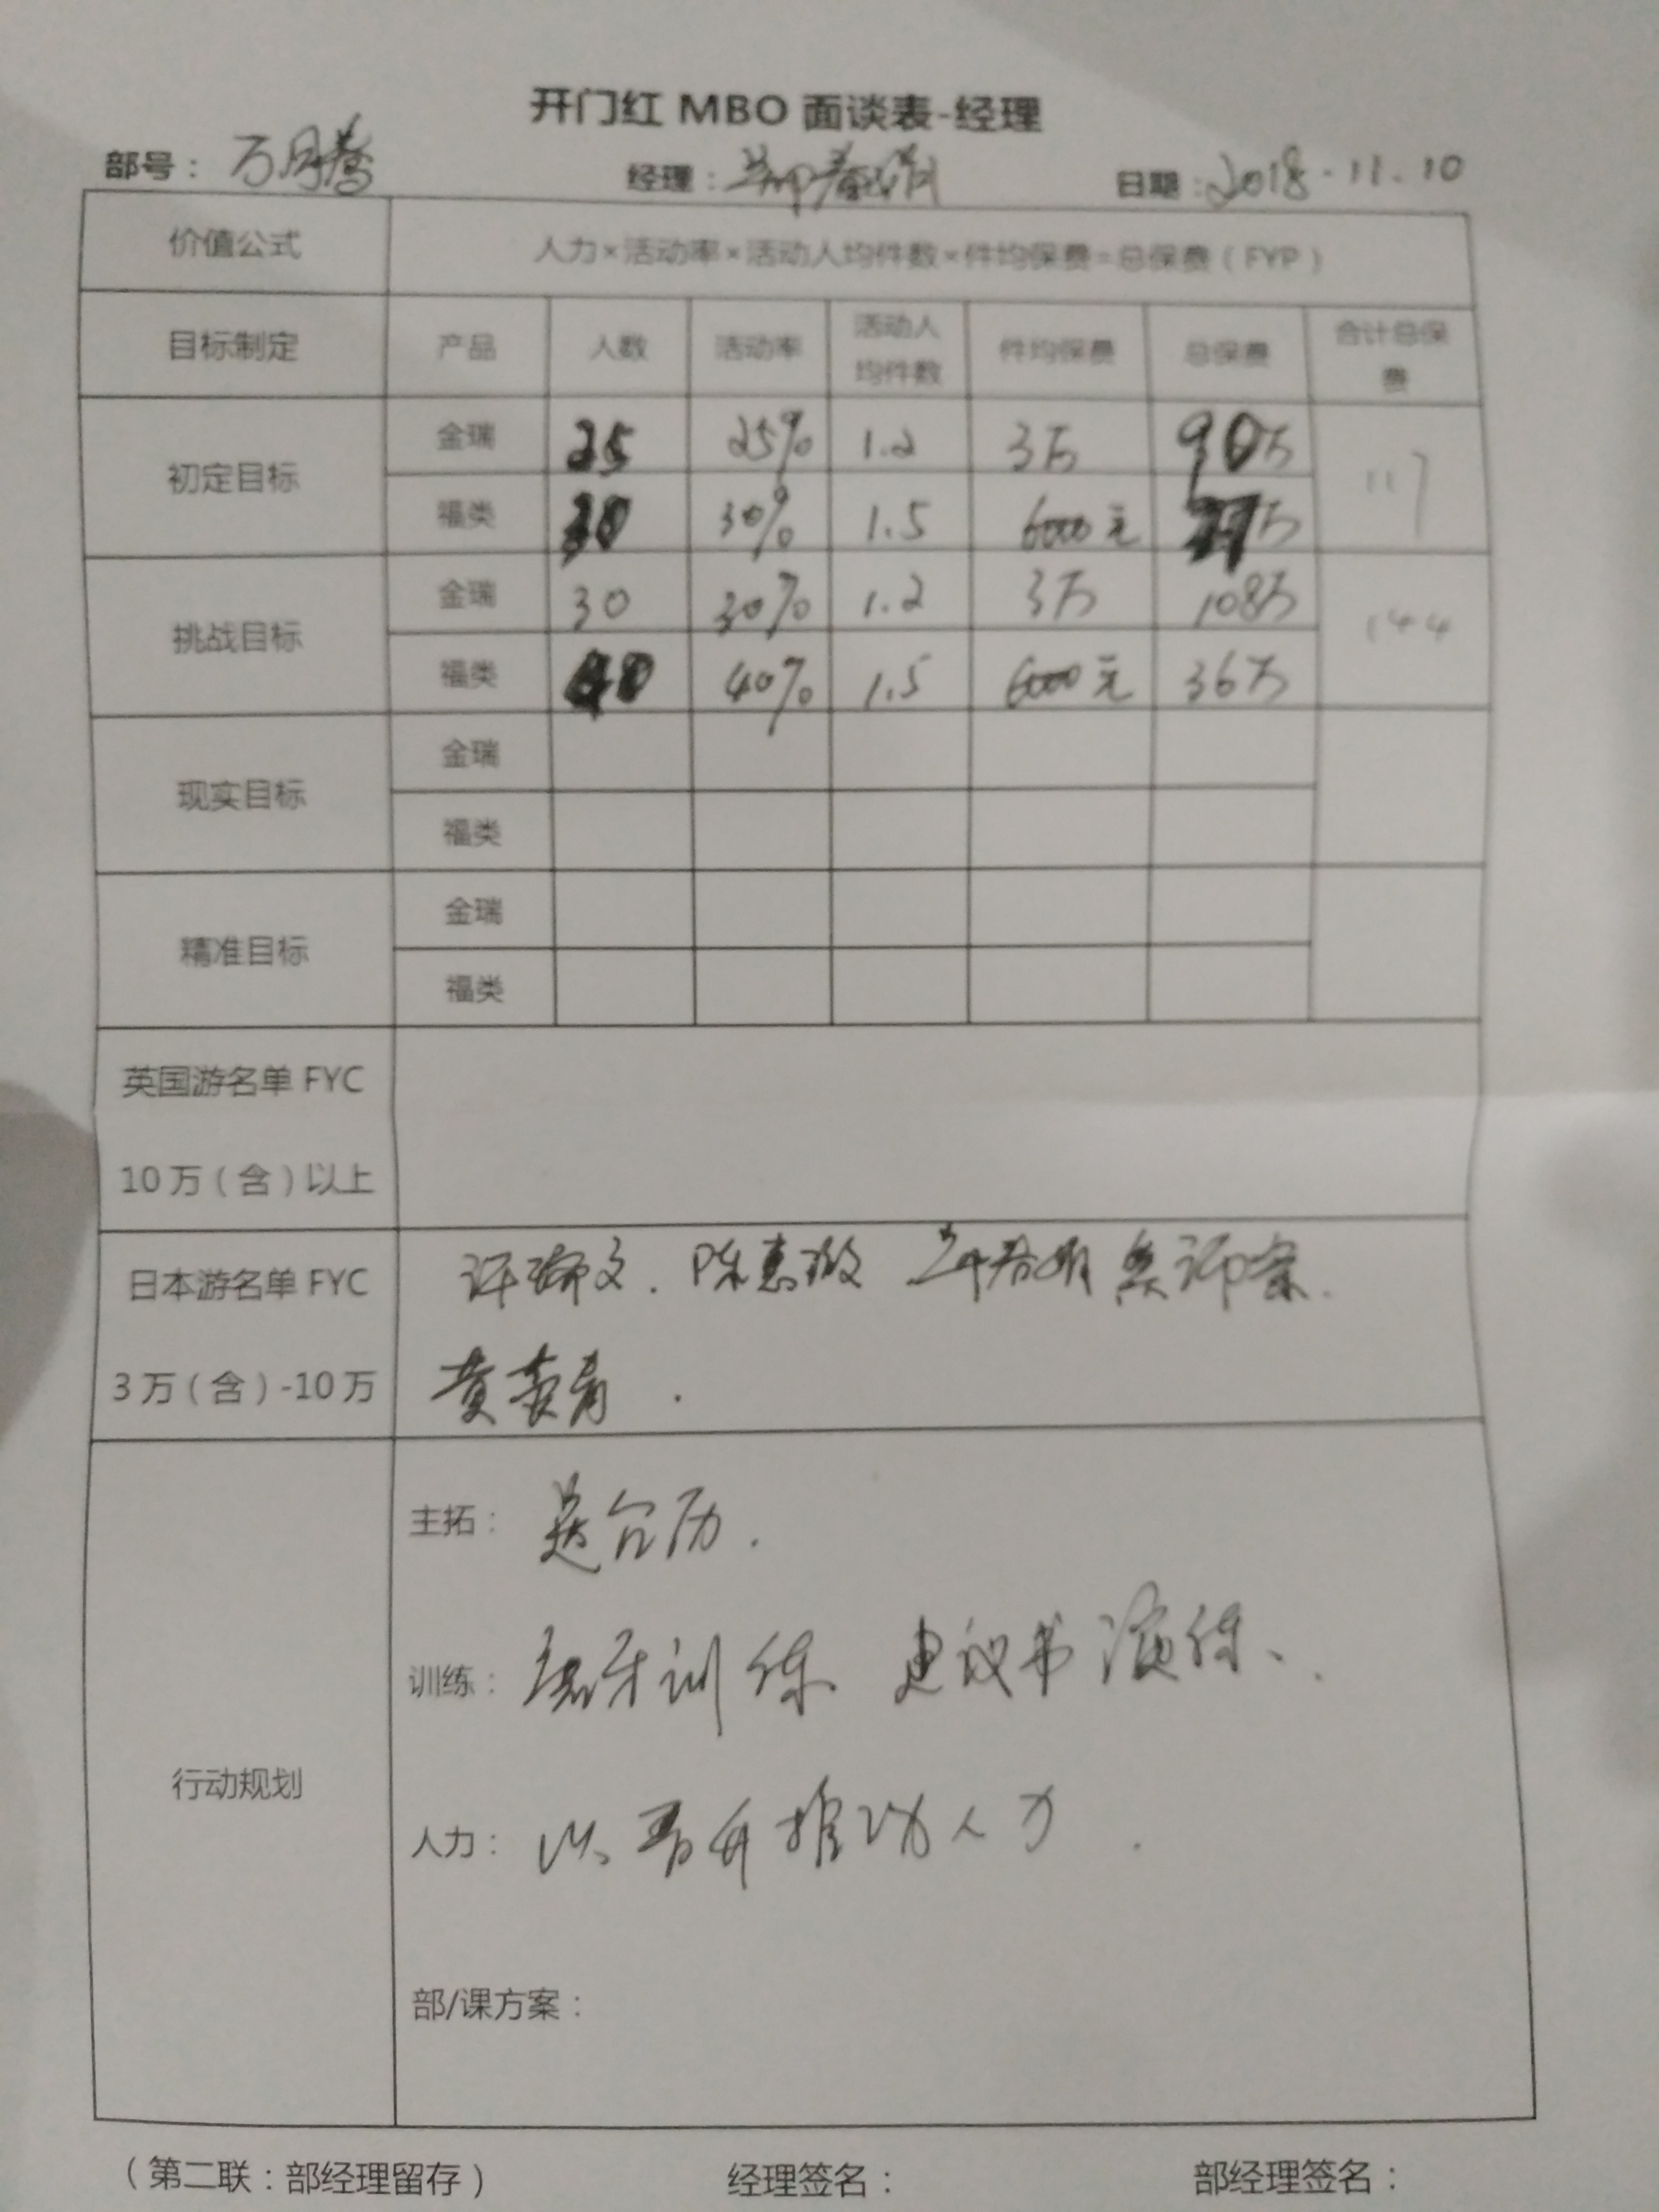 开门红 MBO 面谈表-经理
部号：万月腾 经理： 日期：2018.11.10
价值公式 人力×活动率×活动人均件数×件均保费=总保费（FYP）
目标制定 产品 人数 活动率 活动人均件数 件均保费 总保费 合计总保费
初定目标 金瑞 25 25% 1.2 3万 90万 117
福类 30 30% 1.5 6000元 27万
挑战目标 金瑞 30 30% 1.2 3万 108万 144
福类 40 40% 1.5 6000元 36万
现实目标 金瑞
福类
精准目标 金瑞
福类
英国游名单 FYC
10万（含）以上
日本游名单 FYC 陈惠
3万（含）-10万 黄
行动规划
主拓：送台历.
训练： 训练 建议书演练、
人力：以 推动人力.
部/课方案：
（第二联：部经理留存） 经理签名： 部经理签名：